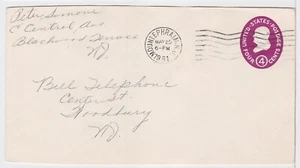 Peter Simone
C Central Ave
Blackwood Terrace
NJ
MOUNT EPHRAIM, N.J.
6-PM
1961
UNITED STATES POSTAGE
4
FOUR CENTS
Bell Telephone
Center St.
Woodbury
NJ.